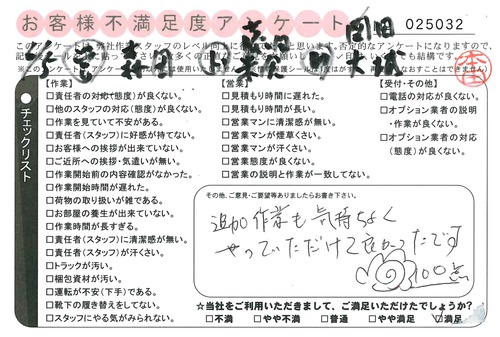 お客様不満足度アンケート
025032
【作業】
□責任者の対応(態度)が良くない。
□他のスタッフの対応(態度)が良くない。
□作業を見ていて不安がある。
□責任者(スタッフ)に好感が持てない。
□お客様への挨拶が出来ていない。
□ご近所への挨拶・気遣いが無い。
□作業開始前の内容確認がなかった。
□作業開始時間が遅れた。
□荷物の取り扱いが雑である。
□お部屋の養生が出来ていない。
□作業時間が長すぎる。
□責任者(スタッフ)に清潔感が無い。
□責任者(スタッフ)が汗くさい。
□トラックが汚い。
□梱包資材が汚い。
□運転が不安(下手)である。
□靴下の履き替えをしてない。
□スタッフにやる気がみられない。
チェックリスト
【営業】
□見積もり時間に遅れた。
□見積もり時間が長い。
□営業マンに清潔感が無い。
□営業マンが煙草くさい。
□営業マンが汗くさい。
□営業態度が良くない。
□営業の説明と作業が一致してない。
【受付・その他】
□電話の対応が良くない。
□オプション業者の説明
・作業が良くない。
□オプション業者の対応
(態度)が良くない。
その他、ご意見・ご要望等ありましたらお書き下さい。
追加作業も気持ちよく
やっていただけて良かったです
100点
☆当社をご利用いただきまして、ご満足いただけたでしょうか?
□不満 □やや不満 □普通 □やや満足 ☑満足